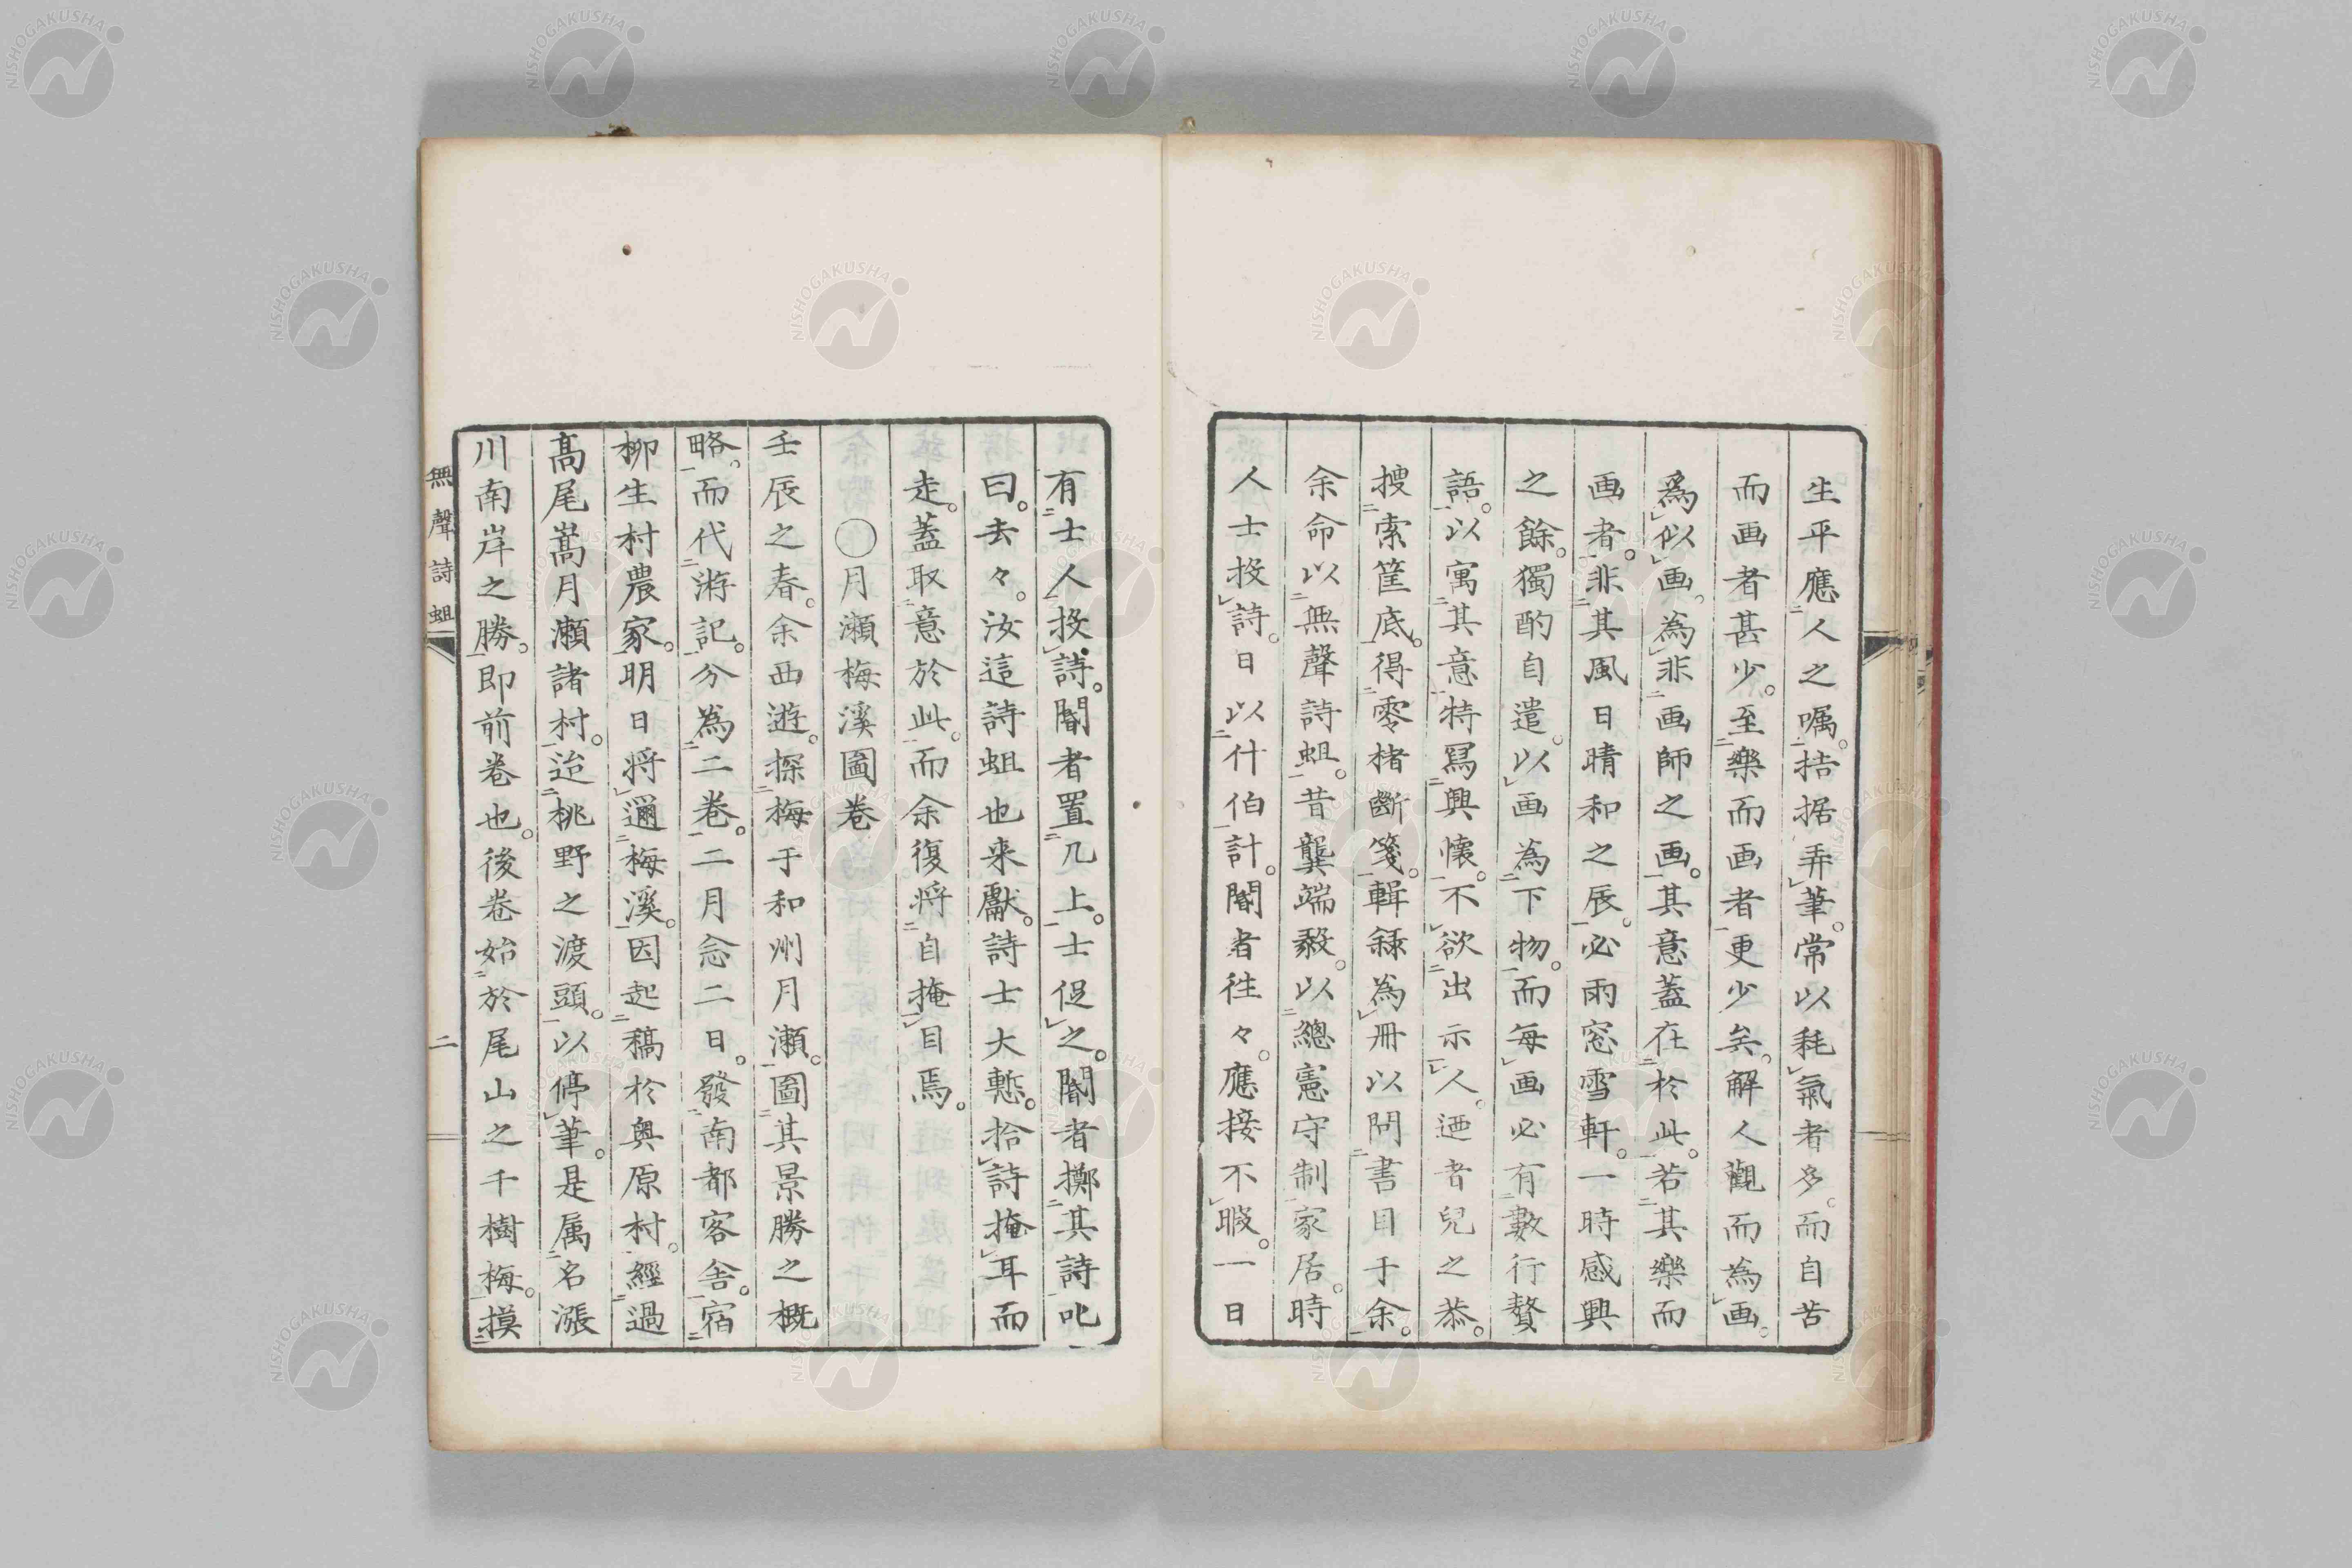 生平應人之嘱。拮据弄筆。常以耗氣者多。而自苦
而画者甚少。至樂而画者更少矣。解人觀而為画。
爲似画。為非画師之画。其意蓋在於此。若其樂而
画者。非其風日晴和之辰。必雨窓雪軒。一時感興
之餘。獨酌自遣。以画為下物。而每画必有數行贅
語。以寓其意特冩興懐。不欲出示人。迺者兒之恭。
搜索筐底。得零楮斷箋。輯録為冊以問書目于余。
余命以無聲詩蛆。昔龔端毅。以總憲守制家居。時
人士投詩。日以什伯計。閽者往々。應接不暇。一日
有士人投詩。閽者置几上。士促之。閽者擲其詩叱
曰。去々。汝這詩蛆也来獻。詩士大慙。拾詩掩耳而
走。蓋取意於此。而余復将自掩目焉。
○月瀬梅溪圖巻
壬辰之春。余西遊。探梅于和州月瀬。圖其景勝之概
略。而代游記。分為二巻。二月念二日。發南都客舎。宿
柳生村農家。明日将邇梅溪。因起稿於奥原村。經過
髙尾嵩月瀬諸村。迨桃野之渡頭。以停筆。是属名漲
川南岸之勝。即前巻也。後巻始於尾山之千樹梅。摸
無聲詩蛆
二
NISHOGAKUSHA